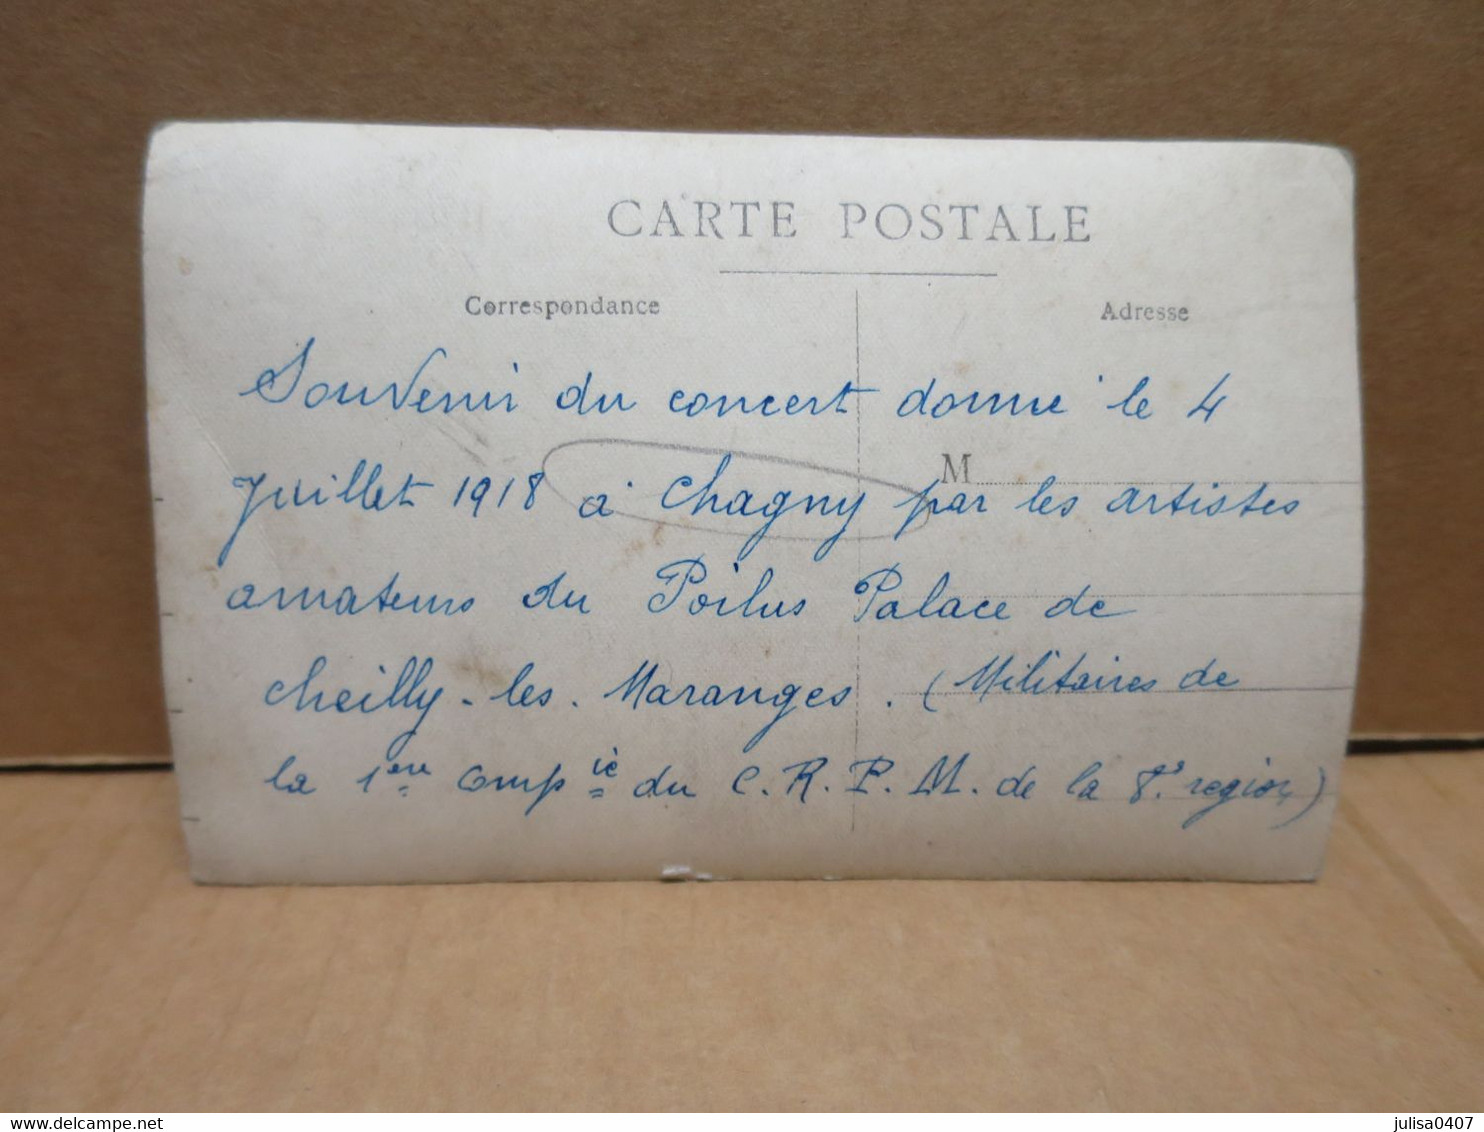 CARTE POSTALE
Correspondance
Adresse
Souvenir du concert donné le 4
M
Juillet 1918 à Chagny par les artistes
amateurs du Poilus Palace de
cheilly-les-Maranges. (Militaires de
la 1ère Compie du C.R.P.M. de la 8e region)
julisa0407